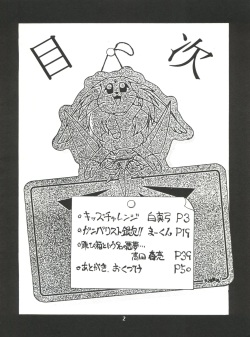 目次
○キッズチャレンジ 白真弓 P3
○ガンバリスト銀次!! まーくん P19
という名の悪夢…
高田 P39
○あとがき、おくづけ P50
2